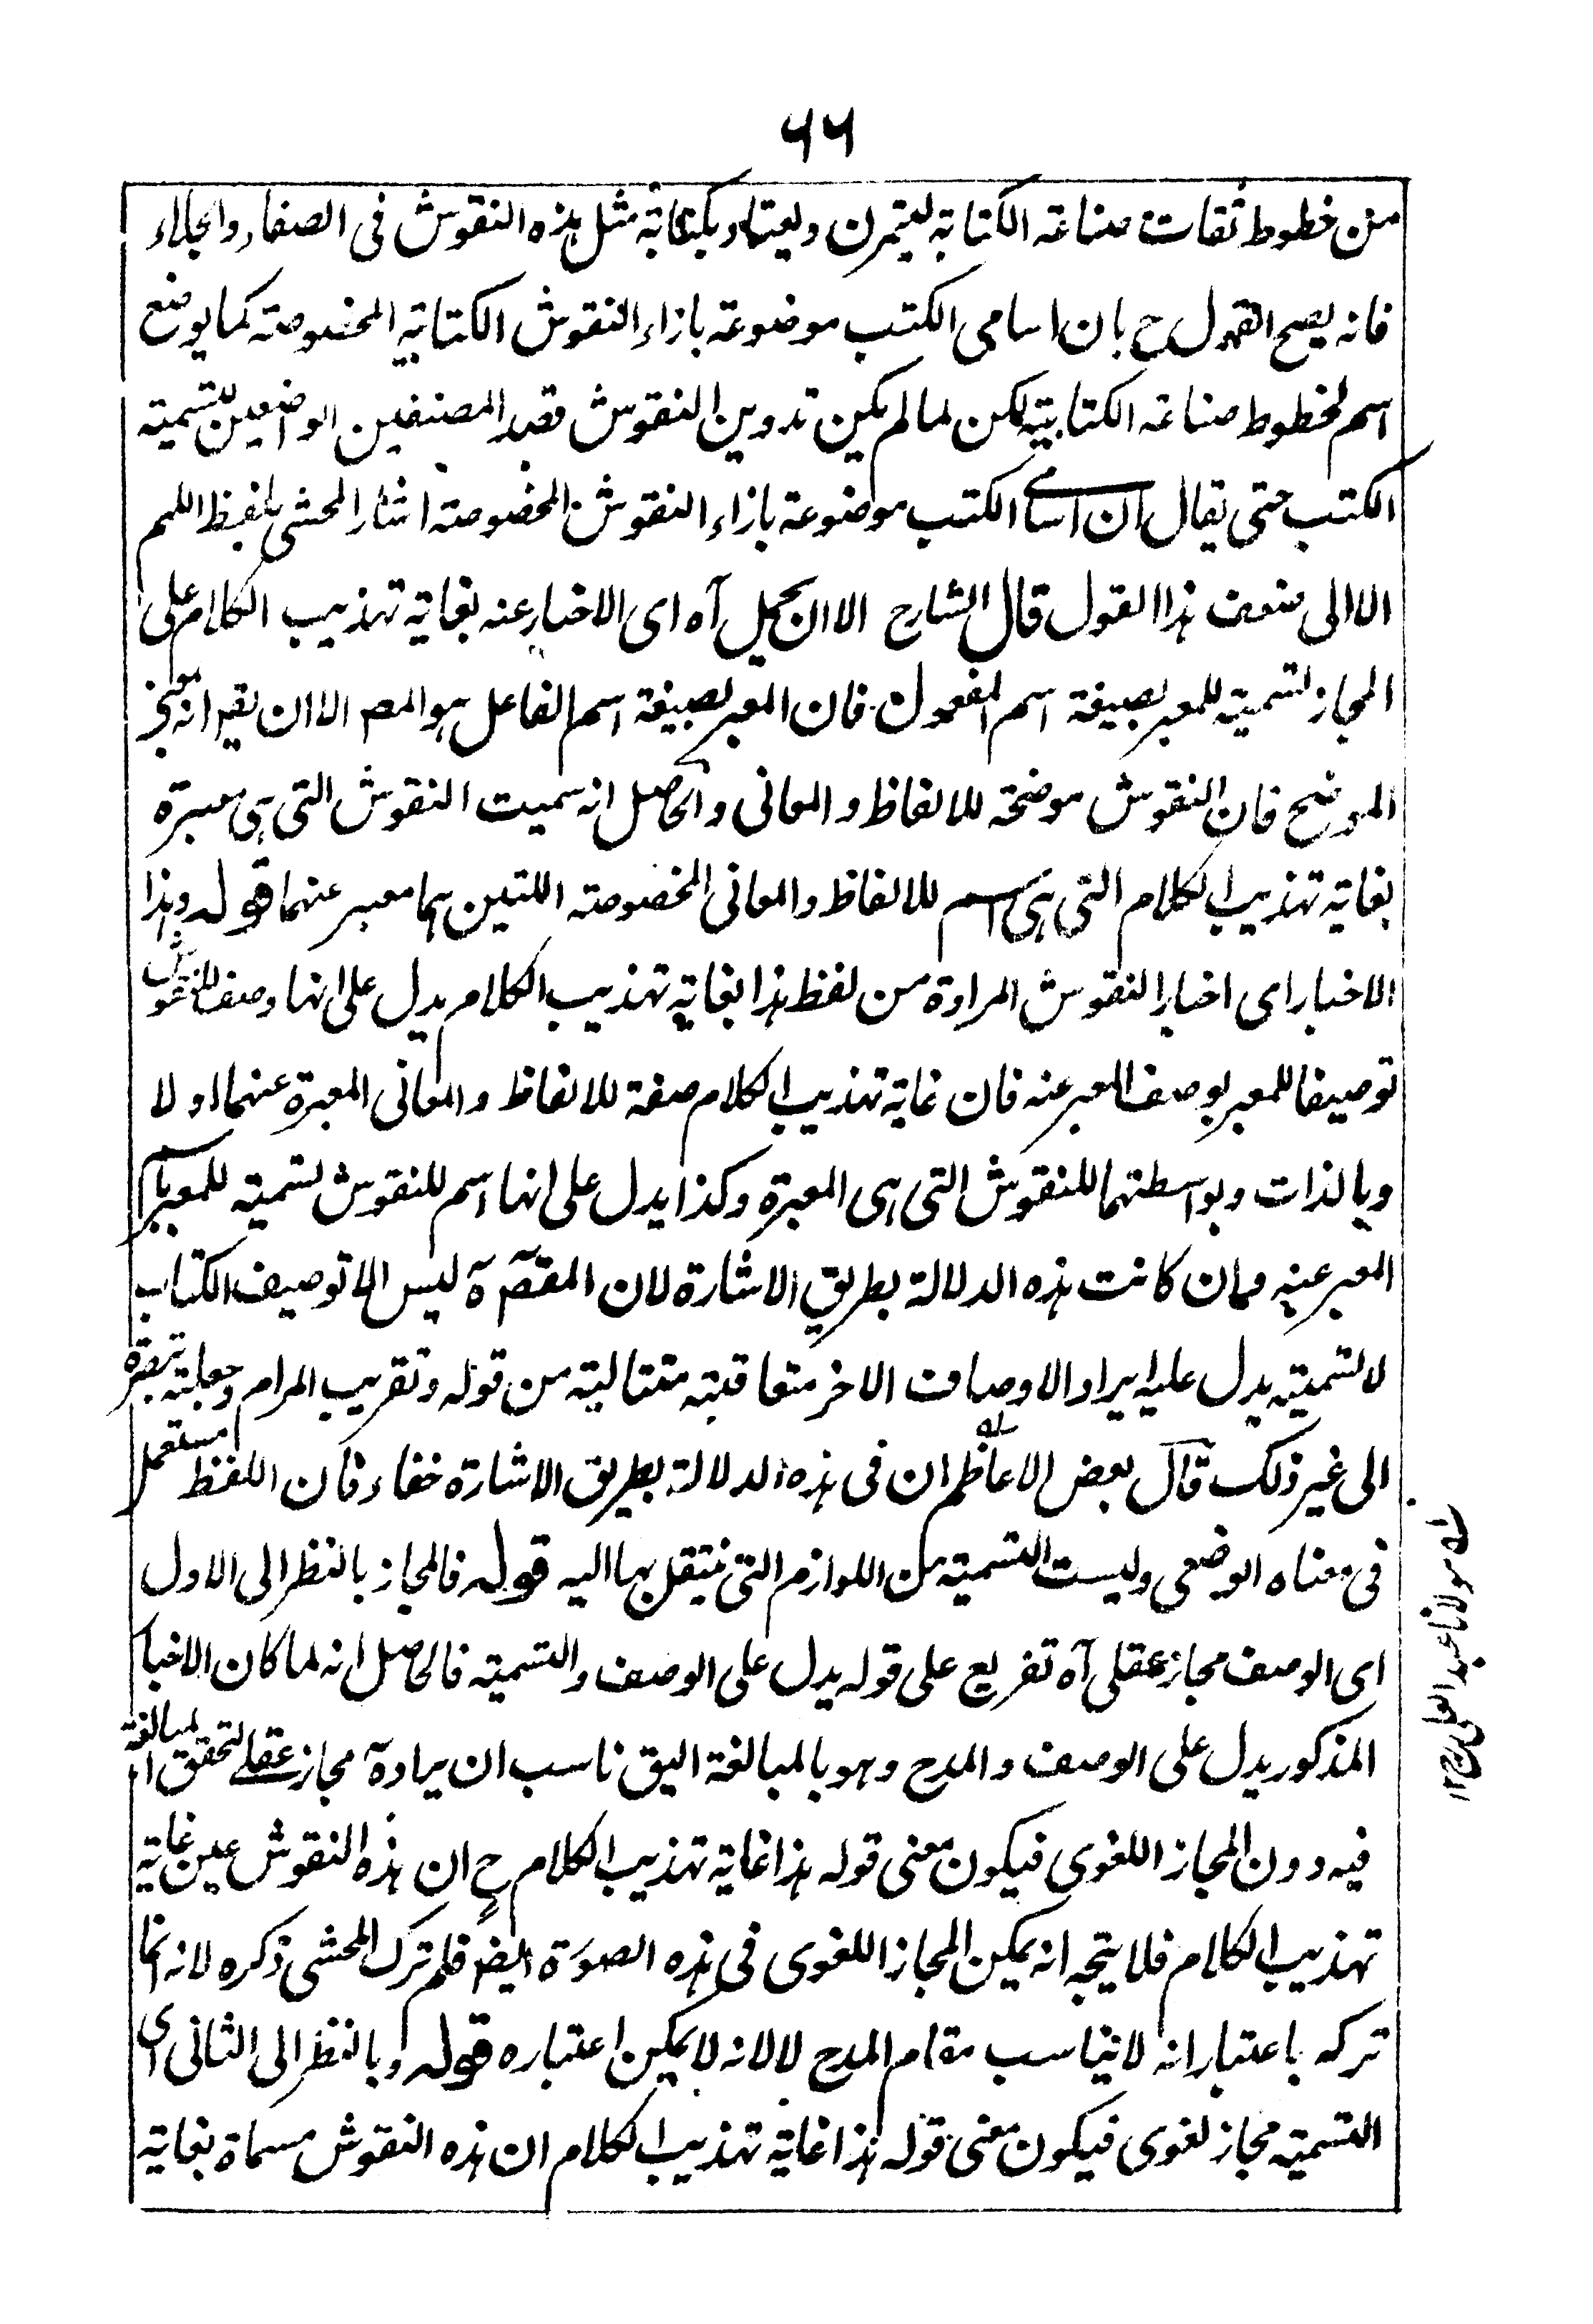 ٦٦
من خطوط ثقات صناعة الكتابة ليتمرن ويعتاد بكتابة مثل هذه النقوش فى الصفاء والجلاء
فانه يصح القول ح بان اسامى الكتب موضوعة بازاء النقوش الكتابية المخصوصة كما يوضع
اسم لخطوط صناعة الكتابية لكن لما لم يكن تدوين النقوش قصد المصنفين الواضعين لتسمية
الكتب حتى يقال ان اسامى الكتب موضوعة بازاء النقوش المخصوصة اشار المحشى بلفظ اللهم
الا الى ضعف هذا القول قال الشارح الا ان يحمل آه اى الاخبار عنه بغاية تهذيب الكلام على
المجاز لتسمية للمعبر بصيغة اسم المفعول فان المعبر بصيغة اسم الفاعل هو المص الا ان يقم انه بمعنى
الموضح فان النقوش موضحة للالفاظ والمعانى والحاصل انه سميت النقوش التى هى معبرة
بغاية تهذيب الكلام التى هى اسم للالفاظ والمعانى المخصوصة اللتين هما معبر عنهما قوله وهذا
الاخبار اى اخبار النقوش المرادة من لفظ هذا بغاية تهذيب الكلام يدل على انها وصف للنقوش
توصيفا للمعبر بوصف المعبر عنه فان غاية تهذيب الكلام صفة للالفاظ والمعانى المعبرة عنهما اولا
وبالذات وبواسطتهما للنقوش التى هى المعبرة وكذا يدل على انها اسم للنقوش لتسمية للمعبر باسم
المعبر عنه وان كانت هذه الدلالة بطريق الاشارة لان المقصم آه ليس الا توصيف الكتاب
لا لتسمية يدل عليه ايراد الاوصاف الاخر متعاقبة متتالية من قوله وتقريب المرام وجعلته تبصرة
الى غير ذلك قال بعض الاعاظم له ان فى هذه الدلالة بطريق الاشارة خفاء فان اللفظ مستعمل
فى معناه الوضعى وليست التسمية من اللوازم التى ينتقل بها اليه قوله فالمجاز بالنظر الى الاول
اى الوصف مجاز عقلى آه تفريع على قوله يدل على الوصف والتسمية فالحاصل انه لما كان الاخبار
المذكور يدل على الوصف والمدح وهو بالمبالغة اليق ناسب ان يراد آه مجاز عقلى لتحقق المبالغة
فيه دون المجاز اللغوى فيكون معنى قوله هذا غاية تهذيب الكلام ح ان هذه النقوش عين غاية
تهذيب الكلام فلا يتجه انه يمكن المجاز اللغوى فى هذه الصورة ايضم فلم ترك المحشى ذكره لانه انما
تركه باعتبار انه لا يناسب مقام المدح لا لانه لا يمكن اعتباره قوله وبالنظر الى الثانى اى
التسمية مجاز لغوى فيكون معنى قوله هذا غاية تهذيب الكلام ان هذه النقوش مسماة بغاية
له مولانا عبد العلى رح ١٢